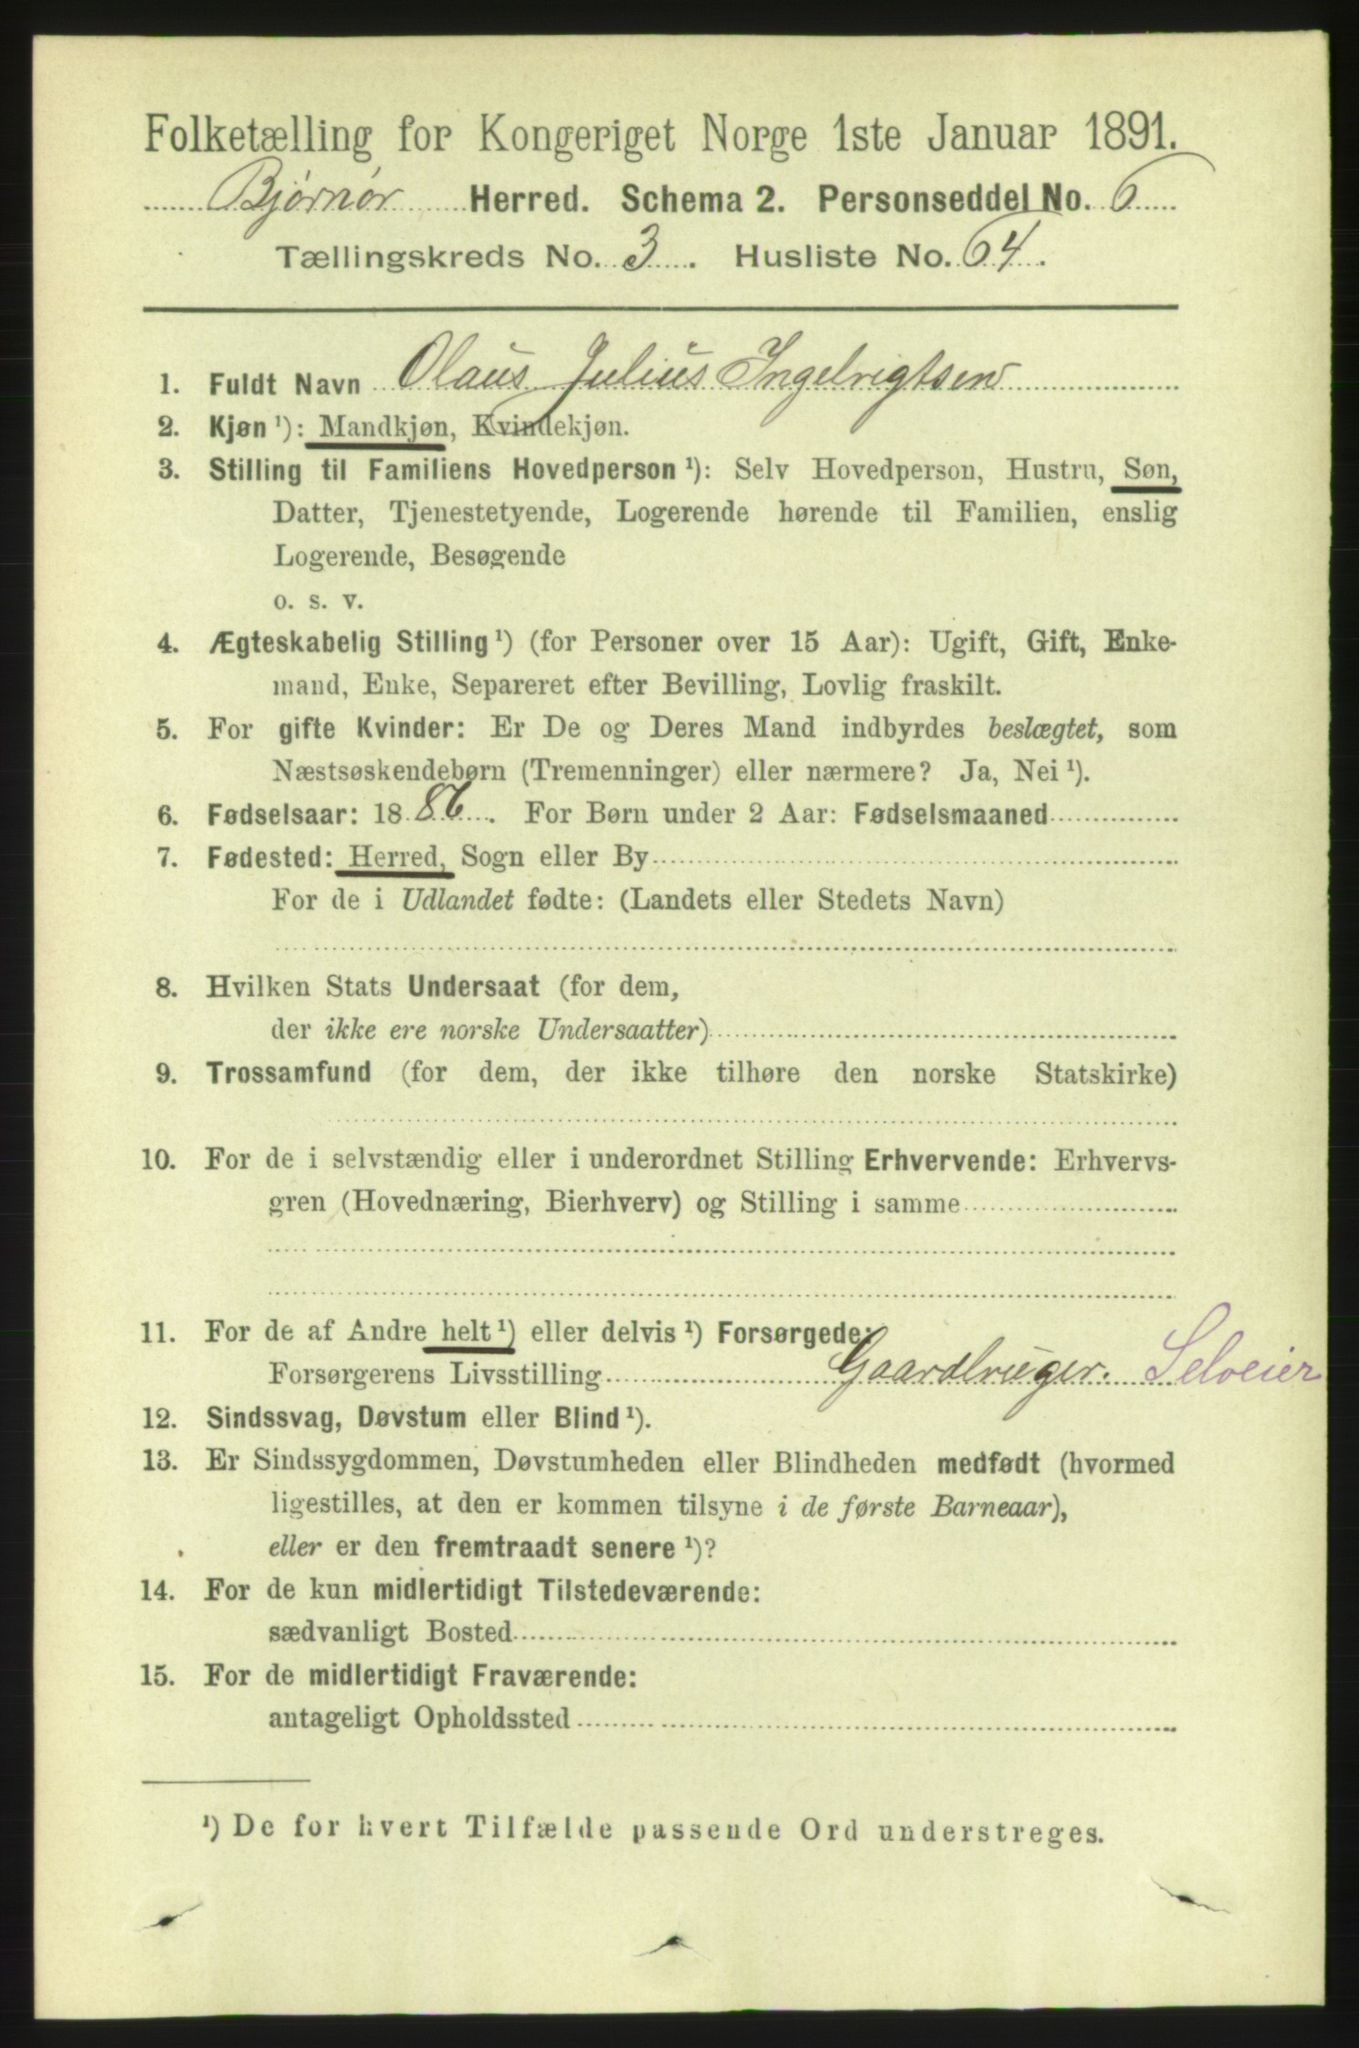 Folketælling for Kongeriget Norge 1ste Januar 1891.
Bjørnør Herred. Schema 2. Personseddel No. 6
Tællingskreds No. 3. Husliste No. 64.
1. Fuldt Navn Olaus Julius Ingelrigtsen
2. Kjøn ¹): Mandkjøn, Kvindekjøn.
3. Stilling til Familiens Hovedperson ¹): Selv Hovedperson, Hustru, Søn,
Datter, Tjenestetyende, Logerende hørende til Familien, enslig
Logerende, Besøgende
o. s. v.
4. Ægteskabelig Stilling ¹) (for Personer over 15 Aar): Ugift, Gift, Enke-
mand, Enke, Separeret efter Bevilling, Lovlig fraskilt.
5. For gifte Kvinder: Er De og Deres Mand indbyrdes beslægtet, som
Næstsøskendebørn (Tremenninger) eller nærmere? Ja, Nei ¹).
6. Fødselsaar: 1886. For Børn under 2 Aar: Fødselsmaaned
7. Fødested: Herred, Sogn eller By
For de i Udlandet fødte: (Landets eller Stedets Navn)
8. Hvilken Stats Undersaat (for dem,
der ikke ere norske Undersaatter)
9. Trossamfund (for dem, der ikke tilhøre den norske Statskirke)
10. For de i selvstændig eller i underordnet Stilling Erhvervende: Erhvervs-
gren (Hovednæring, Bierhverv) og Stilling i samme
11. For de af Andre helt ¹) eller delvis ¹) Forsørgede:
Forsørgerens Livsstilling Gaardbruger. Selveier
12. Sindssvag, Døvstum eller Blind ¹).
13. Er Sindssygdommen, Døvstumheden eller Blindheden medfødt (hvormed
ligestilles, at den er kommen tilsyne i de første Barneaar),
eller er den fremtraadt senere ¹)?
14. For de kun midlertidigt Tilstedeværende:
sædvanligt Bosted
15. For de midlertidigt Fraværende:
antageligt Opholdssted
¹) De for hvert Tilfælde passende Ord understreges.